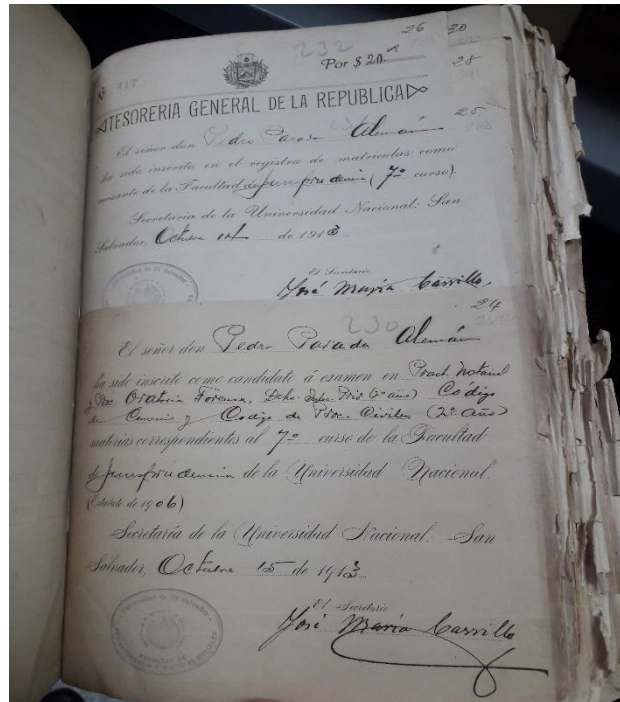 26 20
232
Por $ 20.00
28
Nº 417
TESORERIA GENERAL DE LA REPUBLICA
25
El señor don Pedro Parada Alemán
ha sido inscrito en el registro de matrículas como
cursante de la Facultad de Jurisprudencia (7º curso).
Secretaría de la Universidad Nacional: San
Salvador, Octubre 14 de 1913
El Secretario
José María Carrillo
24
230
El señor don Pedro Parada Alemán
ha sido inscrito como candidato á examen en Pract. Notarial
y Proc. Oratoria Forense, Dcho. Inter. Priv (2º año) Código
de Comercio y Codigo de Proc. Civiles (2º año)
materias correspondientes al 7º curso de la Facultad
de Jurisprudencia de la Universidad Nacional.
(Estatuto de 1906)
Secretaría de la Universidad Nacional. San
Salvador, Octubre 15 de 1913
El Secretario
José María Carrillo